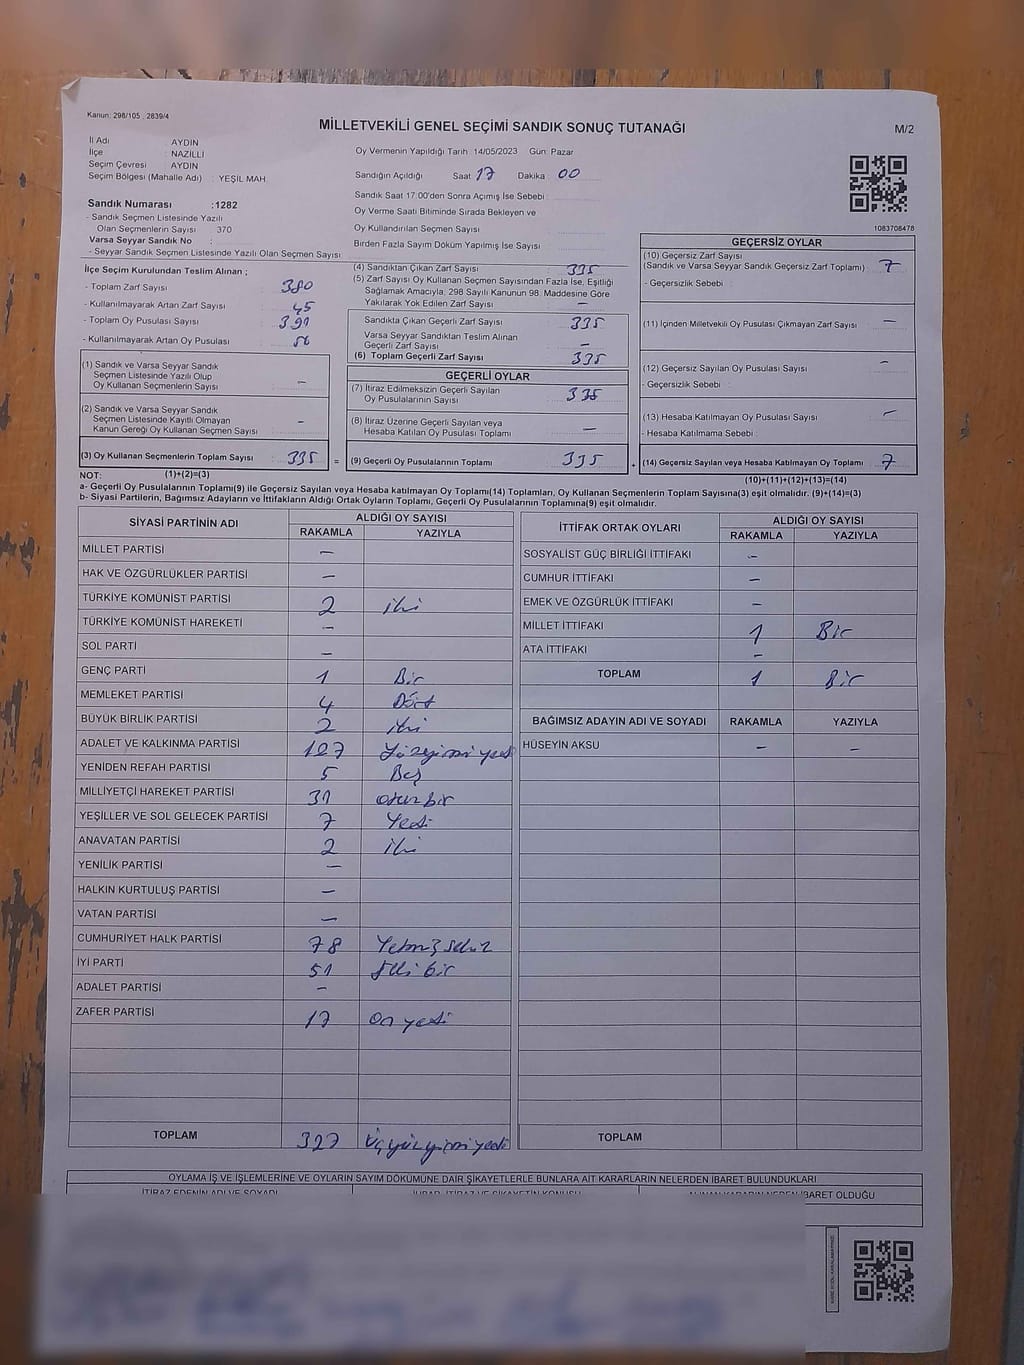 Kanun: 298/105 , 2839/4
MİLLETVEKİLİ GENEL SEÇİMİ SANDIK SONUÇ TUTANAĞI
M/2
İl Adı : AYDIN
İlçe : NAZİLLİ
Seçim Çevresi : AYDIN
Seçim Bölgesi (Mahalle Adı) : YEŞİL MAH.
Oy Vermenin Yapıldığı Tarih :14/05/2023 Gün: Pazar
Sandığın Açıldığı Saat : 17 Dakika : 00
Sandık Saat 17:00'den Sonra Açımış İse Sebebi :
Oy Verme Saati Bitiminde Sırada Bekleyen ve
Oy Kullandırılan Seçmen Sayısı :
Birden Fazla Sayım Döküm Yapılmış İse Sayısı :
1083708478
Sandık Numarası :1282
- Sandık Seçmen Listesinde Yazılı
Olan Seçmenlerin Sayısı : 370
Varsa Seyyar Sandık No :
- Seyyar Sandık Seçmen Listesinde Yazılı Olan Seçmen Sayısı :
İlçe Seçim Kurulundan Teslim Alınan ;
- Toplam Zarf Sayısı : 380
- Kullanılmayarak Artan Zarf Sayısı : 45
- Toplam Oy Pusulası Sayısı : 391
- Kullanılmayarak Artan Oy Pusulası : 56
(1) Sandık ve Varsa Seyyar Sandık
Seçmen Listesinde Yazılı Olup
Oy Kullanan Seçmenlerin Sayısı : –
(2) Sandık ve Varsa Seyyar Sandık
Seçmen Listesinde Kayıtlı Olmayan
Kanun Gereği Oy Kullanan Seçmen Sayısı : –
(3) Oy Kullanan Seçmenlerin Toplam Sayısı : 335 =
NOT: (1)+(2)=(3)
(4) Sandıktan Çıkan Zarf Sayısı : 335
(5) Zarf Sayısı Oy Kullanan Seçmen Sayısından Fazla İse, Eşitliği
Sağlamak Amacıyla, 298 Sayılı Kanunun 98. Maddesine Göre
Yakılarak Yok Edilen Zarf Sayısı : –
Sandıkta Çıkan Geçerli Zarf Sayısı : 335
Varsa Seyyar Sandıktan Teslim Alınan
Geçerli Zarf Sayısı : –
(6) Toplam Geçerli Zarf Sayısı : 335
GEÇERLİ OYLAR
(7) İtiraz Edilmeksizin Geçerli Sayılan
Oy Pusulalarının Sayısı : 335
(8) İtiraz Üzerine Geçerli Sayılan ve
Hesaba Katılan Oy Pusulası Toplamı : –
(9) Geçerli Oy Pusulalarının Toplamı : 335 +
GEÇERSİZ OYLAR
(10) Geçersiz Zarf Sayısı
(Sandık ve Varsa Seyyar Sandık Geçersiz Zarf Toplamı) : 7
- Geçersizlik Sebebi :
(11) İçinden Milletvekili Oy Pusulası Çıkmayan Zarf Sayısı : –
(12) Geçersiz Sayılan Oy Pusulası Sayısı : –
- Geçersizlik Sebebi :
(13) Hesaba Katılmayan Oy Pusulası Sayısı : –
- Hesaba Katılmama Sebebi :
(14) Geçersiz Sayılan veya Hesaba Katılmayan Oy Toplamı : 7
(10)+(11)+(12)+(13)=(14)
a- Geçerli Oy Pusulalarının Toplamı(9) ile Geçersiz Sayılan veya Hesaba katılmayan Oy Toplamı(14) Toplamları, Oy Kullanan Seçmenlerin Toplam Sayısına(3) eşit olmalıdır. (9)+(14)=(3)
b- Siyasi Partilerin, Bağımsız Adayların ve İttifakların Aldığı Ortak Oyların Toplamı, Geçerli Oy Pusulalarının Toplamına(9) eşit olmalıdır.
SİYASİ PARTİNİN ADI ALDIĞI OY SAYISI
RAKAMLA YAZIYLA
MİLLET PARTİSİ –
HAK VE ÖZGÜRLÜKLER PARTİSİ –
TÜRKİYE KOMÜNİST PARTİSİ 2 iki
TÜRKİYE KOMÜNİST HAREKETİ –
SOL PARTİ –
GENÇ PARTİ 1 Bir
MEMLEKET PARTİSİ 4 Dört
BÜYÜK BİRLİK PARTİSİ 2 iki
ADALET VE KALKINMA PARTİSİ 127 Yüzyirmi yedi
YENİDEN REFAH PARTİSİ 5 Beş
MİLLİYETÇİ HAREKET PARTİSİ 31 otuz bir
YEŞİLLER VE SOL GELECEK PARTİSİ 7 Yedi
ANAVATAN PARTİSİ 2 iki
YENİLİK PARTİSİ –
HALKIN KURTULUŞ PARTİSİ –
VATAN PARTİSİ –
CUMHURİYET HALK PARTİSİ 78 Yetmiş sekiz
İYİ PARTİ 51 Elli bir
ADALET PARTİSİ –
ZAFER PARTİSİ 17 On yedi
TOPLAM 327 Üçyüzyirmi yedi
İTTİFAK ORTAK OYLARI ALDIĞI OY SAYISI
RAKAMLA YAZIYLA
SOSYALİST GÜÇ BİRLİĞİ İTTİFAKI –
CUMHUR İTTİFAKI –
EMEK VE ÖZGÜRLÜK İTTİFAKI –
MİLLET İTTİFAKI 1 Bir
ATA İTTİFAKI –
TOPLAM 1 Bir
BAĞIMSIZ ADAYIN ADI VE SOYADI RAKAMLA YAZIYLA
HÜSEYİN AKSU – –
TOPLAM
OYLAMA İŞ VE İŞLEMLERİNE VE OYLARIN SAYIM DÖKÜMÜNE DAİR ŞİKAYETLERLE BUNLARA AİT KARARLARIN NELERDEN İBARET BULUNDUKLARI
İTİRAZ EDENİN ADI VE SOYADI İHBAR, İTİRAZ VE ŞİKAYETİN KONUSU ALINAN KARARIN NEDEN İBARET OLDUĞU